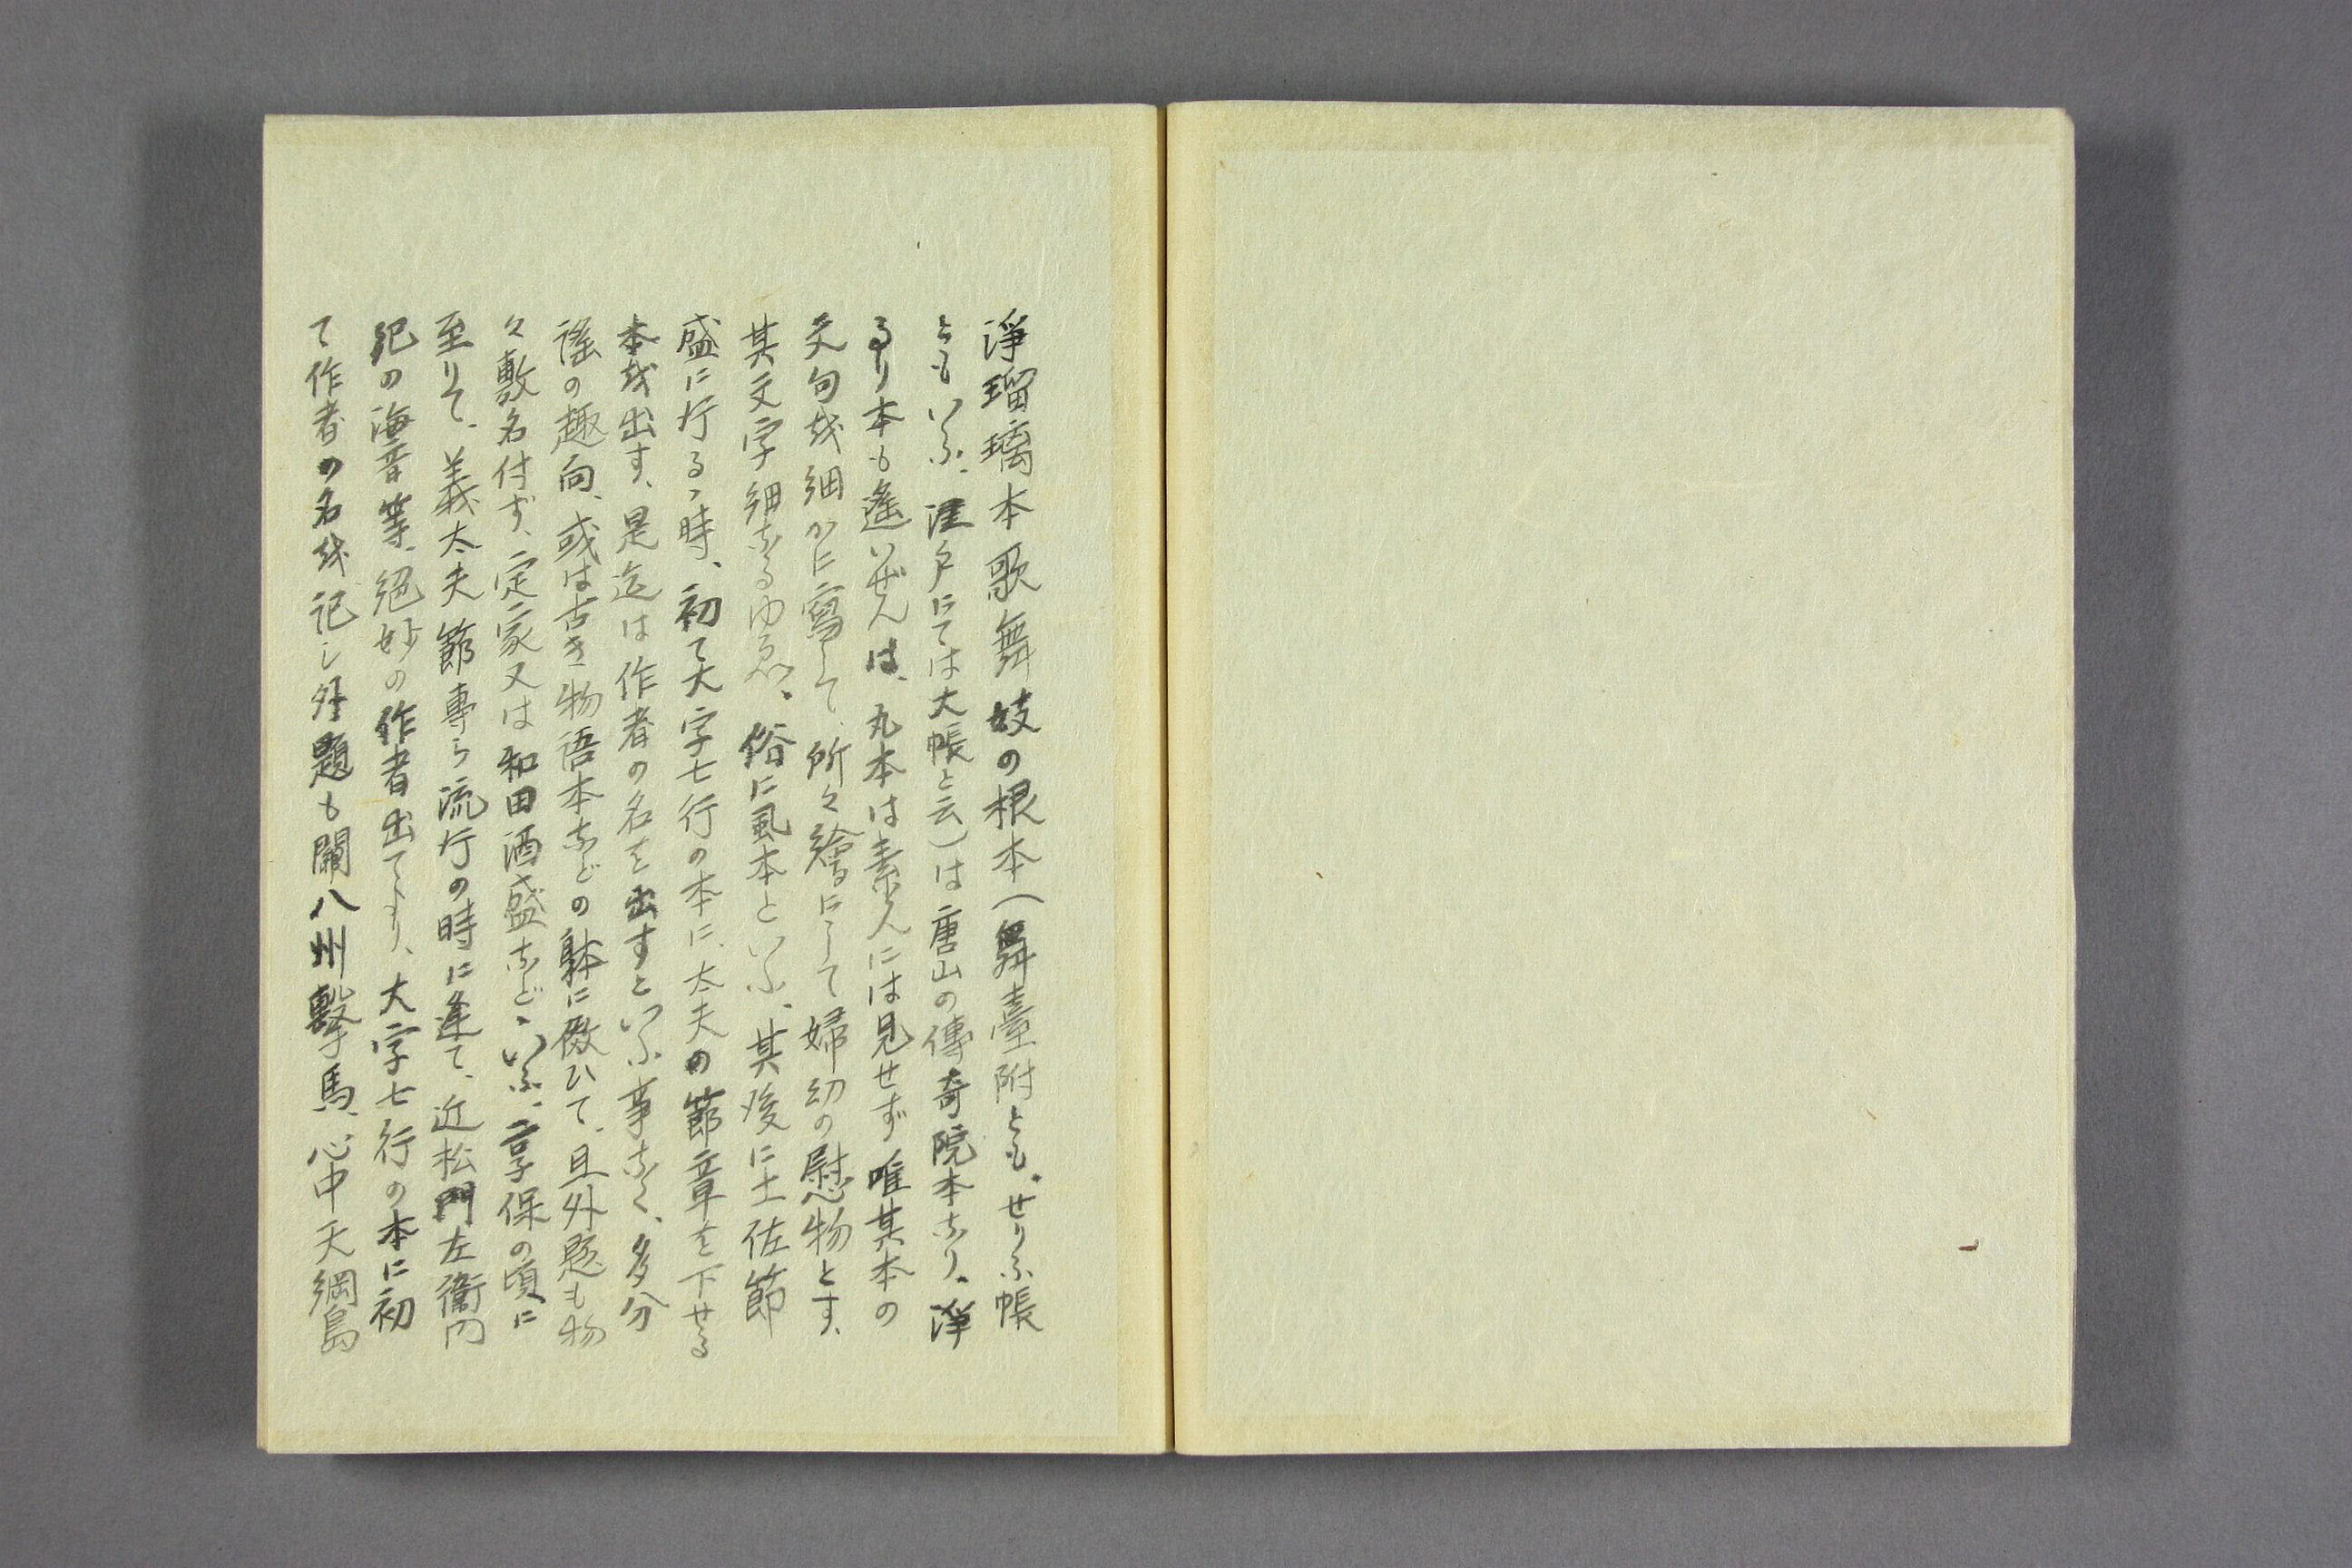 淨瑠璃本歌舞妓の根本(舞臺附とも、せりふ帳
ともいふ、江戸にては大帳と云)は唐山の傳奇院本なり、淨
るり本も遙いぜんは、丸本は素人には見せず唯其本の
文句を細かに寫して、所々繪にして婦幼の慰物とす、
其文字細なるゆゑ、俗に風本といふ、其後に土佐節
盛に行るゝ時、初て大字七行の本に、太夫の節章を下せる
本を出す、是迄は作者の名を出すといふ事なく、多分
謠の趣向、或は古き物語本などの躰に傚ひて、且外題も物
々敷名付ず、定家又は和田酒盛などゝいふ、享保の頃に
至りて、義太夫節專ら流行の時に逢て、近松門左衞門
紀の海音等、絕妙の作者出てより、大字七行の本に初
て作者の名を記し外題も關八州繫馬、心中天綱島